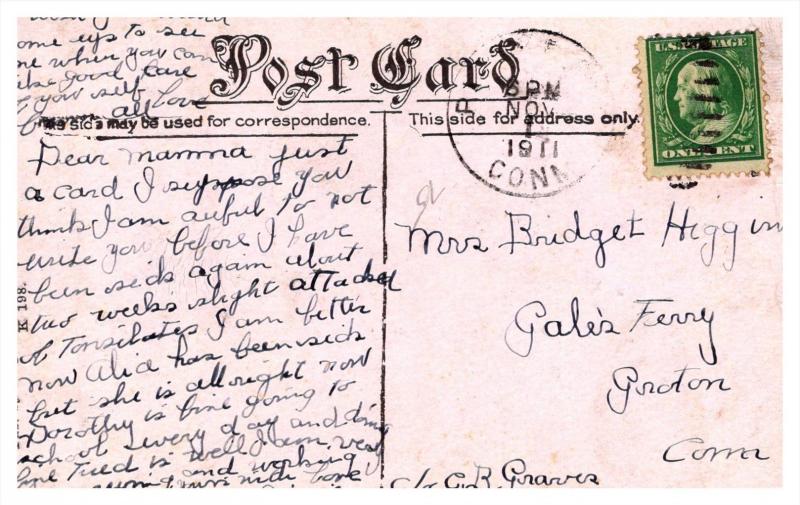 come up to see
me when you can
take good care
of your self
from all Love
Post Card
This side may be used for correspondence.
This side for address only.
6 PM
NOV
1911
CONN
U.S. POSTAGE
ONE CENT
Dear mamma just
a card I suppose you
think I am awful to not
write you before I have
been sick again about
two weeks slight attacked
of Tonsilates I am better
now Alice has been sick
but she is allright now
Dorothy is fine going to
school every day and doing
fine Fred is well I am very
and working
K 198.
Mrs Bridget Higgin
Gales Ferry
Groton
Conn
c/o G. R. Graves